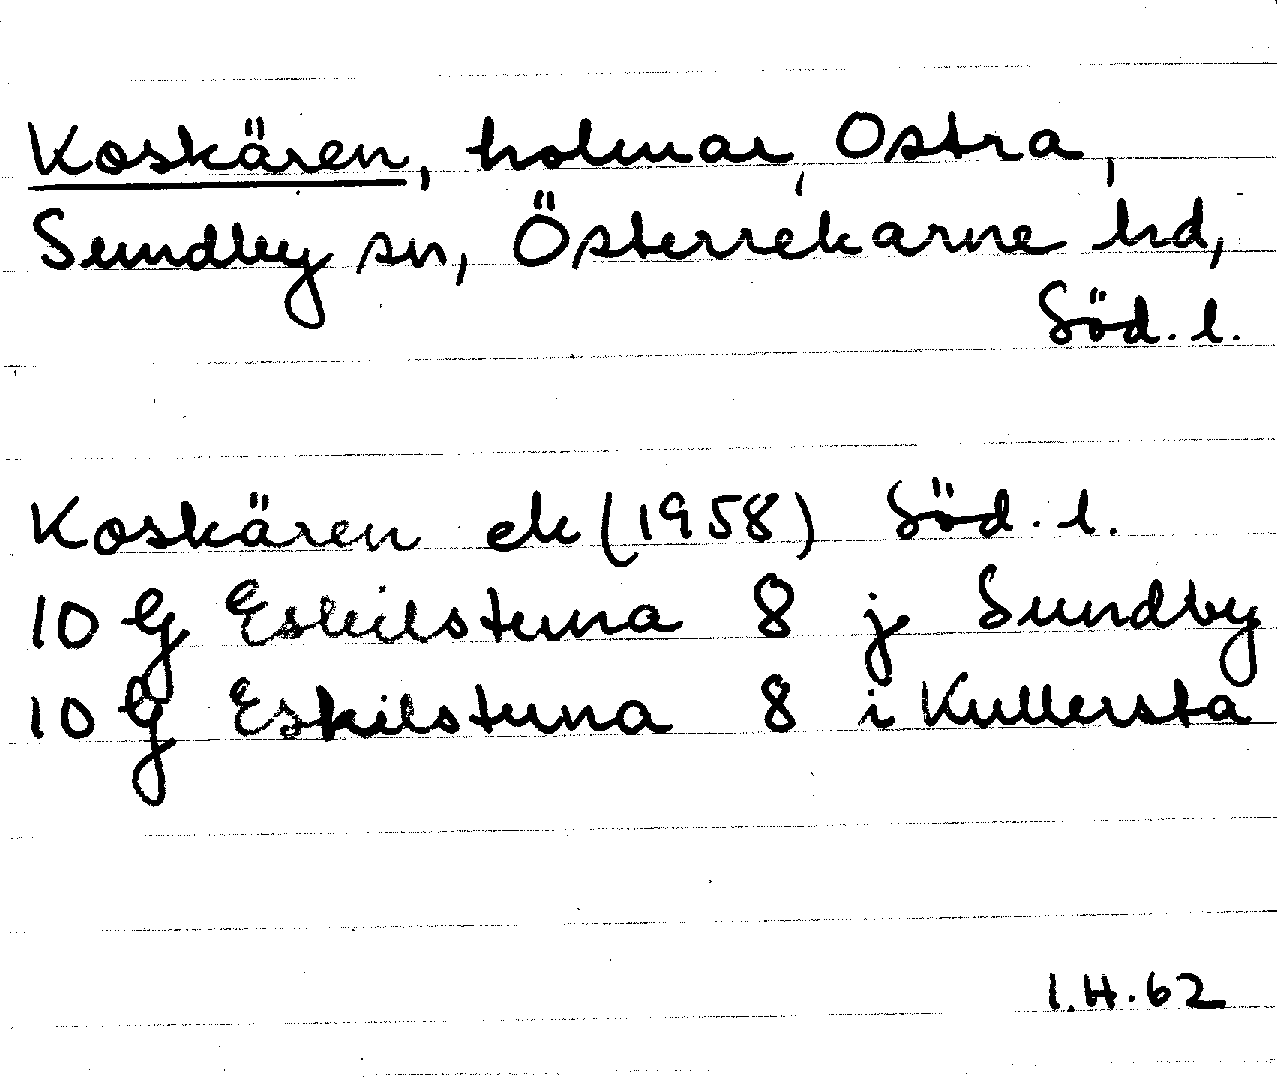 Koskären, holmar, Ostra,
Sundby sn, Österrekarne hd,
Söd. l.
Koskären ek (1958) Söd. l.
10 G Eskilstuna 8 j Sundby
10 G Eskilstuna 8 i Kullersta
I.H. 62